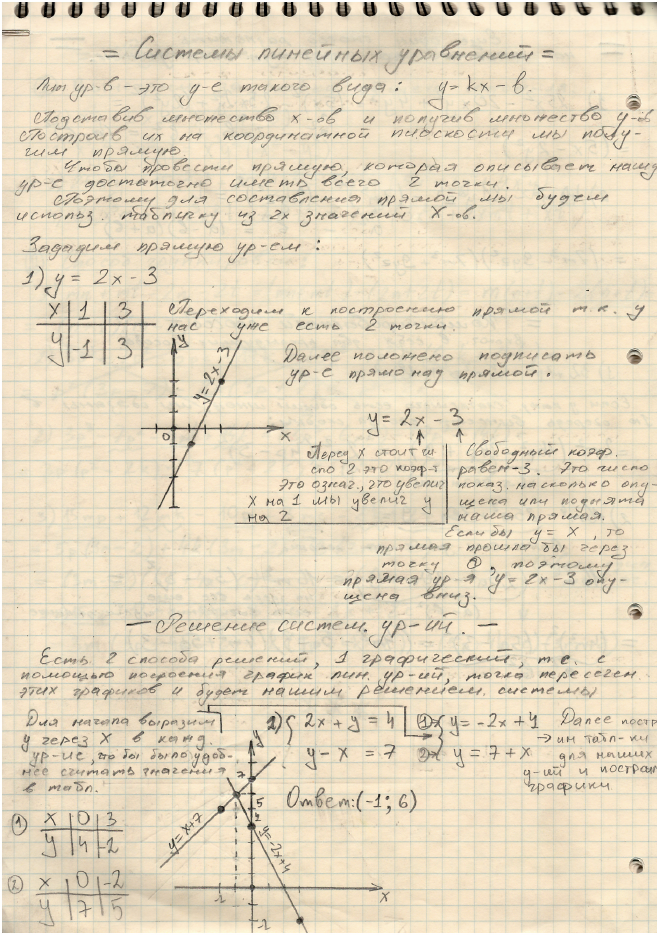 = Системы линейных уравнений =
Лин ур-в - это у-е такого вида: y = kx - b.
Подставив множество x-ов и получив множество y-ов
Построив их на координатной плоскости мы полу-
чим прямую
Чтобы провести прямую, которая описывает нашу
ур-е достаточно иметь всего 2 точки.
Поэтому для составления прямой мы будем
использ. табличку из 2х значений X-ов.
Зададим прямую ур-ем:
1) y = 2x - 3
x 1 3
y -1 3
Переходим к построению прямой т.к. у
нас уже есть 2 точки.
y
y=2x-3
0
x
Далее положено подписать
ур-е прямо над прямой.
y = 2x - 3
Перед X стоит чи
сло 2 это коэф-т
Это означ., что увелич
X на 1 мы увелич y
на 2
Свободный коэф.
равен -3. Это число
показ. насколько опу-
щена или поднята
наша прямая.
Если бы y = X, то
прямая прошла бы через
точку 0, поэтому
прямая ур-я y = 2x - 3 опу-
щена вниз.
- Решение систем. ур-ий. -
Есть 2 способа решений, 1 графический, т.е. с
помощью построения график лин. ур-ий, точка пересечен.
этих графиков и будет нашим решением системы
Для начала выразим
y через X в кажд.
ур-ие, что бы было удоб-
нее считать значения
в табл.
2) { 2x + y = 4
y - x = 7
1) { y = -2x + 4
2) y = 7 + x
Далее постр
→ им табл-ки
для наших
у-ий и построи
графики
Ответ: (-1; 6)
1
x 0 3
y 4 -2
2
x 0 -2
y 7 5
y
7
5
y=x+7
y=-2x+4
-2
-2
x